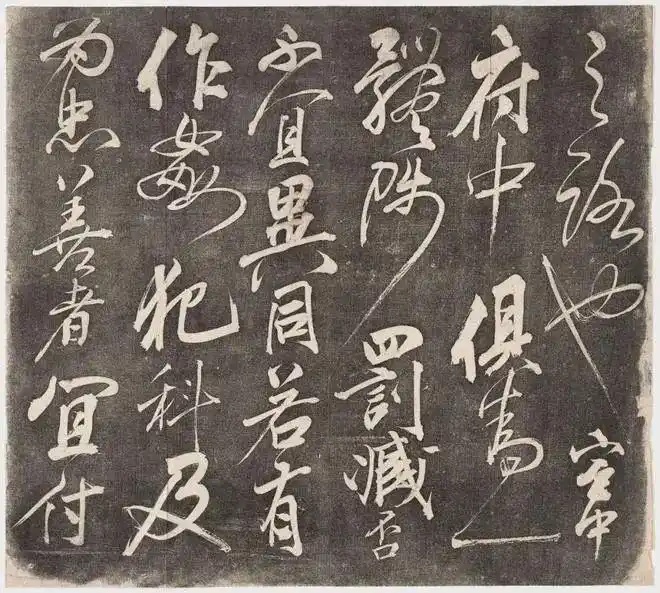 之路也宫中
府中俱為一
體陟罰臧否
不宜異同若有
作姦犯科及
為忠善者宜付